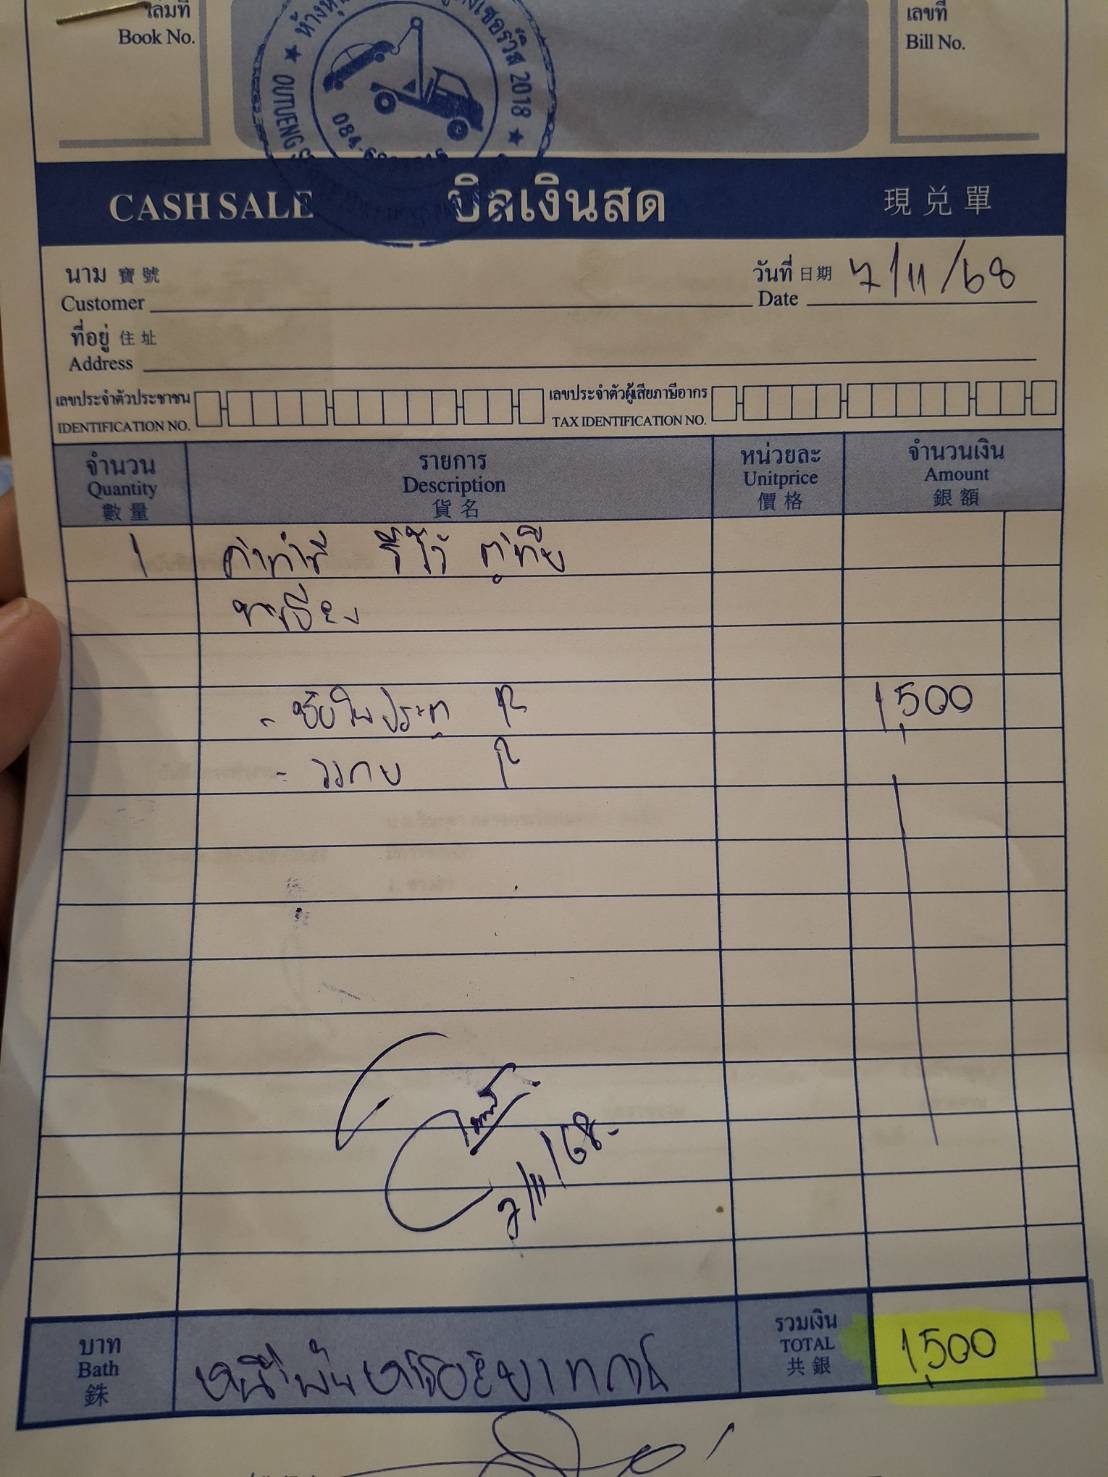 เล่มที่
Book No.
เลขที่
Bill No.
2018
OUTUENG
CASH SALE บิลเงินสด 現兑單
นาม 寶號
Customer
วันที่ 日期 7/11/68
Date
ที่อยู่ 住址
Address
เลขประจำตัวประชาชน
IDENTIFICATION NO.
เลขประจำตัวผู้เสียภาษีอากร
TAX IDENTIFICATION NO.
จำนวน
Quantity
數量
รายการ
Description
貨名
หน่วยละ
Unitprice
價格
จำนวนเงิน
Amount
銀額
1 ค่าทำสี
- ประตู R 1,500
- R
7/11/68-
บาท
Bath
銖
หนึ่งพันห้าร้อยบาทถ้วน
รวมเงิน
TOTAL
共銀
1,500